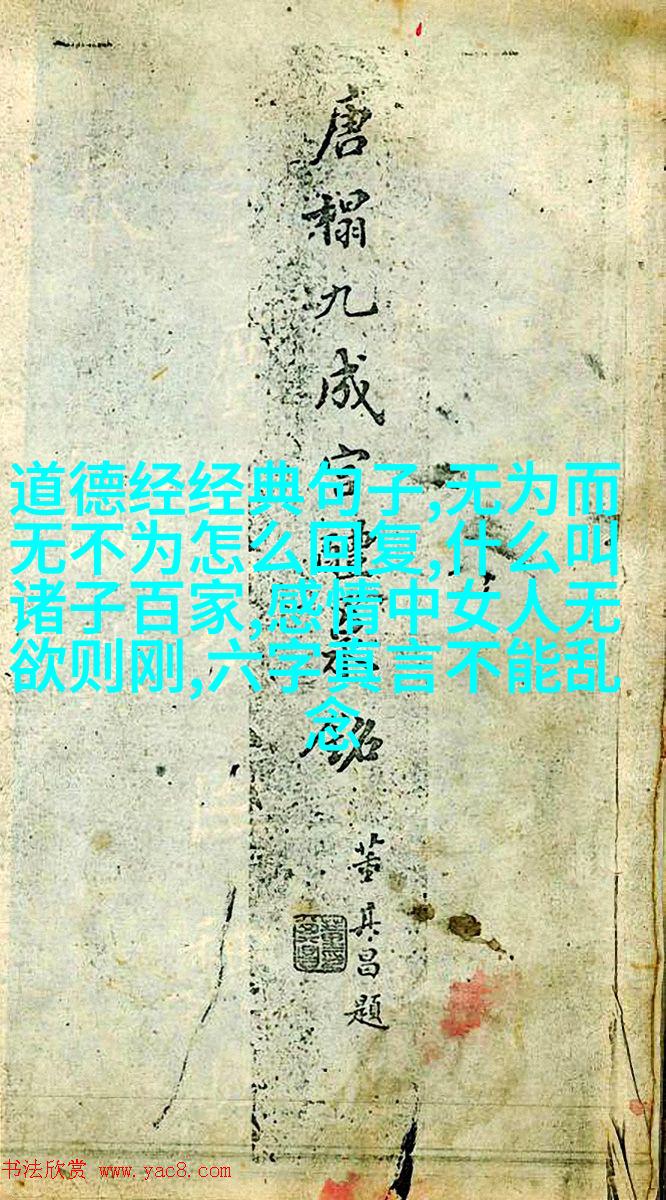 唐榻九成宫醴泉铭
董其昌題
道德经经典句子,无为而
无不为怎么回复,什么叫
诸子百家,感情中女人无
欲则刚,六字真言不能乱
念
书法欣赏 www.yac8.com